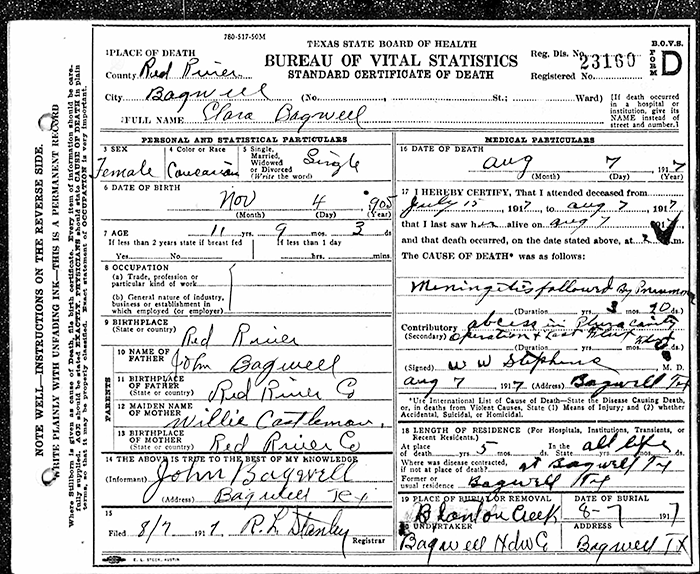 780-517-50M
TEXAS STATE BOARD OF HEALTH
BUREAU OF VITAL STATISTICS
STANDARD CERTIFICATE OF DEATH
B.O.V.S. FORM D
Reg. Dis. No. 23160
Registered No.
1 PLACE OF DEATH
County Red River
City Bagwell (No. St.; Ward)
[If death occurred in a hospital or institution, give its NAME instead of street and number.]
2 FULL NAME Clara Bagwell
PERSONAL AND STATISTICAL PARTICULARS
3 SEX Female
4 Color or Race Caucasian
5 Single, Married, Widowed or Divorced (Write the word) Single
6 DATE OF BIRTH Nov 4 1905
(Month) (Day) (Year)
7 AGE 11 yrs. 9 mos. 3 ds
If less than 2 years state if breast fed Yes No
If less than 1 day hrs. mins.
8 OCCUPATION
(a) Trade, profession or particular kind of work
(b) General nature of industry, business or establishment in which employed (or employer)
9 BIRTHPLACE (State or country) Red River
PARENTS
10 NAME OF FATHER John Bagwell
11 BIRTHPLACE OF FATHER (State or country) Red River Co
12 MAIDEN NAME OF MOTHER Willie Castleman
13 BIRTHPLACE OF MOTHER (State or country) Red River Co
14 THE ABOVE IS TRUE TO THE BEST OF MY KNOWLEDGE
(Informant) John Bagwell
(Address) Bagwell Tx
15
Filed 8/7 1917 R. L. Stanley Registrar
MEDICAL PARTICULARS
16 DATE OF DEATH Aug 7 1917
(Month) (Day) (Year)
17 I HEREBY CERTIFY, That I attended deceased from
July 15 1917 to Aug 7 1917
that I last saw her alive on Aug 7 1917
and that death occurred, on the date stated above, at M.
The CAUSE OF DEATH* was as follows:
Meningitis followed By Pneumonia
(Duration yrs. 3 mos. ds.)
Contributory (Secondary) abcess in
Operation
(Duration yrs. mos. ds.)
(Signed) W W Stephens M. D.
Aug 7 1917 (Address) Bagwell Tx
*Use International List of Cause of Death—State the Disease Causing Death, or, in deaths from Violent Causes, State (1) Means of Injury; and (2) whether Accidental, Suicidal, or Homicidal.
18 LENGTH OF RESIDENCE (For Hospitals, Institutions, Transients, or Recent Residents.)
At place of death yrs. 5 mos. ds. In the State all life yrs. mos. ds.
Where was disease contracted, if not at place of death? at Bagwell Tx
Former or usual residence Bagwell Tx
19 PLACE OF BURIAL OR REMOVAL Blanton Creek
DATE OF BURIAL 8-7 1917
20 UNDERTAKER Bagwell Hdw Co
ADDRESS Bagwell TX
E. L. STECK, AUSTIN
NOTE WELL—INSTRUCTIONS ON THE REVERSE SIDE.
WRITE PLAINLY WITH UNFADING INK—THIS IS A PERMANENT RECORD
Where Stillborn is given as cause of Death, file birth certificate. Every item of information should be carefully supplied. AGE should be stated EXACTLY. PHYSICIANS should state CAUSE OF DEATH in plain terms, so that it may be properly classified. Exact statement of OCCUPATION is very important.